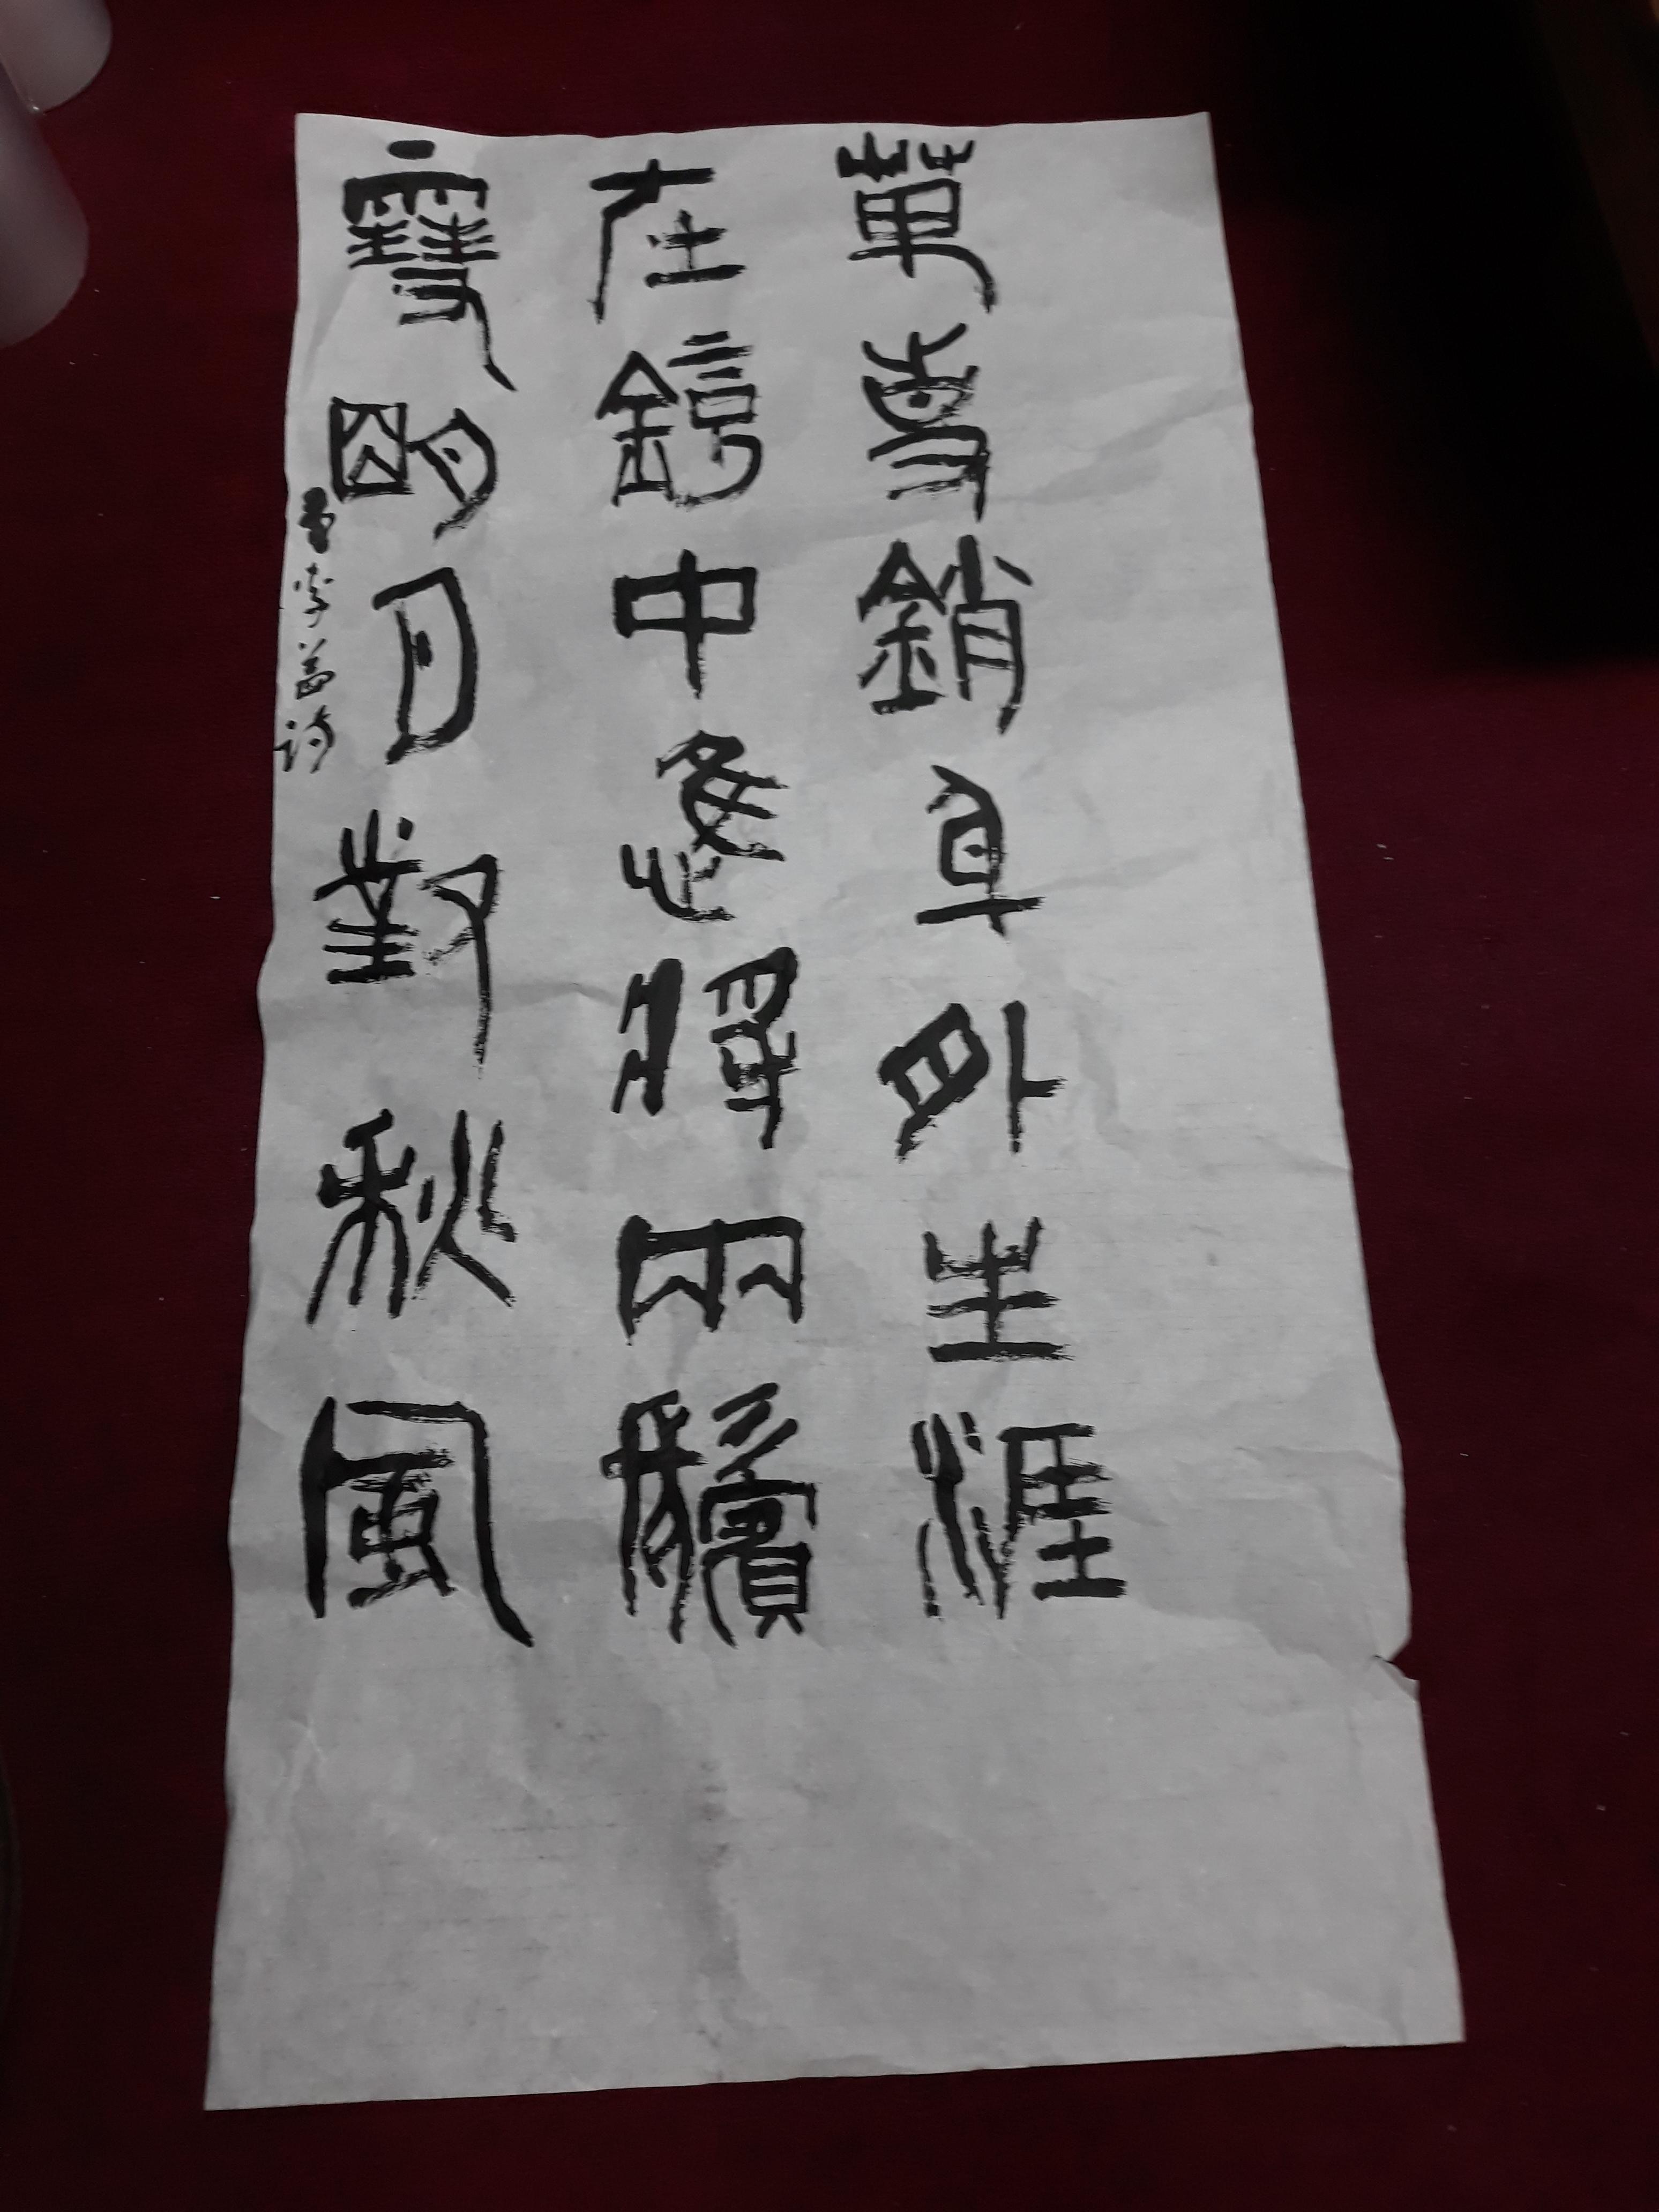 萬事銷身外生涯
在鏡中惟將兩鬢
雪明日對秋風
李益诗